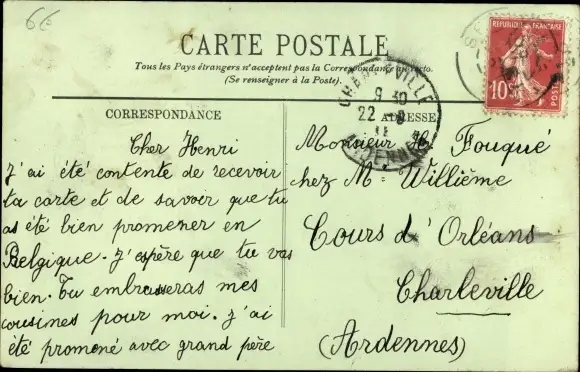 6€
CARTE POSTALE
Tous les Pays étrangers n'acceptent pas la Correspondance au recto.
(Se renseigner à la Poste).
RÉPUBLIQUE FRANÇAISE
10c
POSTES
CHARLEVILLE
9 30
22
ARDENNES
CORRESPONDANCE
Cher Henri
J'ai été contente de recevoir
ta carte et de savoir que tu
as été bien promener en
Belgique. J'espère que tu vas
bien. Tu embrasseras mes
cousines pour moi. J'ai
été promené avec grand père
ADRESSE
Monsieur H. Fouqué
chez M Willième
Cours d'Orléans
Charleville
(Ardennes)